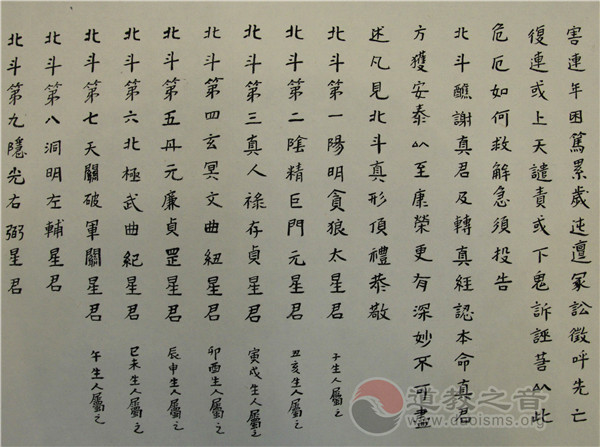 害連年困篤累歲迍邅冢訟徵呼先亡
復連或上天譴責或下鬼訴誣若以此
危厄如何救解急須投告
北斗醮謝真君及轉真經認本命真君
方獲安泰以至康榮更有深妙不可盡
述凡見北斗真形頂禮恭敬
北斗第一陽明貪狼太星君 子生人屬之
北斗第二陰精巨門元星君 丑亥生人屬之
北斗第三真人祿存貞星君 寅戌生人屬之
北斗第四玄冥文曲紐星君 卯酉生人屬之
北斗第五丹元廉貞罡星君 辰申生人屬之
北斗第六北極武曲紀星君 巳未生人屬之
北斗第七天關破軍關星君 午生人屬之
北斗第八洞明左輔星君
北斗第九隱光右弼星君
道教之音
www.daoisms.org